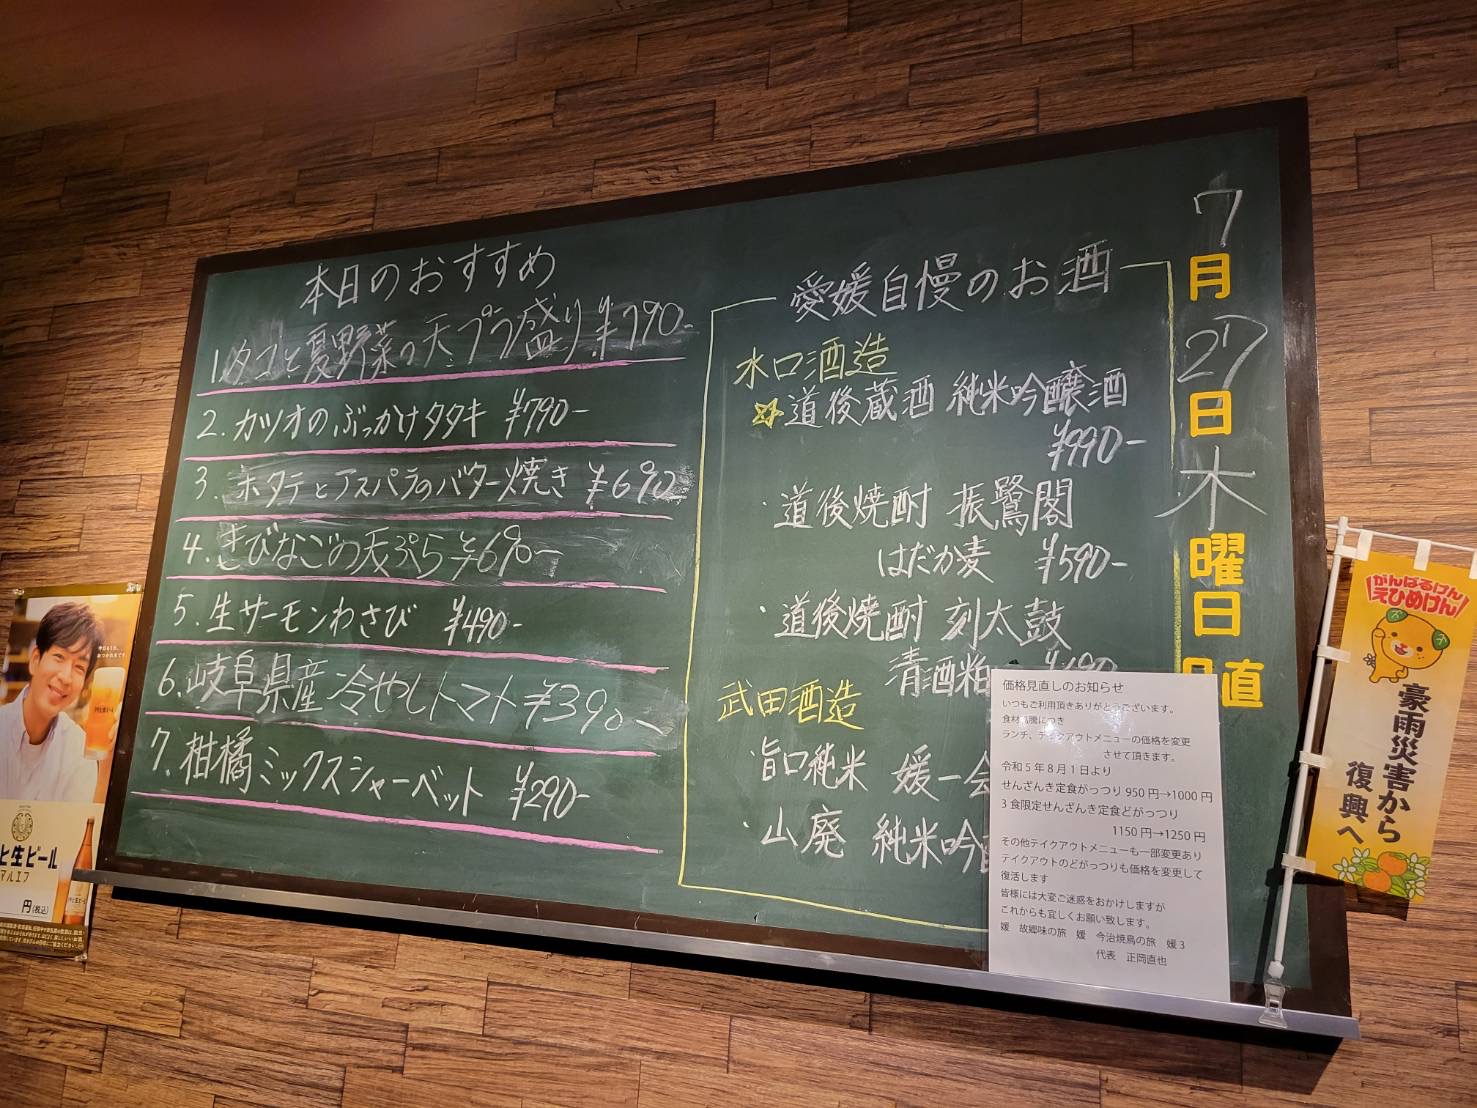 本日のおすすめ
1.タコと夏野菜の天プラ盛り ¥790-
2.カツオのぶっかけタタキ ¥790-
3.ホタテとアスパラのバター焼き ¥690-
4.きびなごの天ぷら ¥690-
5.生サーモンわさび ¥490-
6.岐阜県産冷やしトマト ¥390-
7.柑橘ミックスシャーベット ¥290-
愛媛自慢のお酒
水口酒造
☆道後蔵酒 純米吟醸酒
¥990-
・道後焼酎 振鷺閣
はだか麦 ¥590-
・道後焼酎 刻太鼓
清酒粕
武田酒造
・旨口純米 媛一会
・山廃 純米吟
7月27日木曜日
直
価格見直しのお知らせ
いつもご利用頂きありがとうございます。
食材高騰につき
ランチ、テイクアウトメニューの価格を変更
させて頂きます。
令和5年8月1日より
せんざんき定食がっつり 950円→1000円
3食限定せんざんき定食どがっつり
1150円→1250円
その他テイクアウトメニューも一部変更あり
テイクアウトのどがっつりも価格を変更して
復活します
皆様には大変ご迷惑をおかけしますが
これからも宜しくお願い致します。
媛 故郷味の旅 媛 今治焼鳥の旅 媛3
代表 正岡直也
がんばるけん
えひめけん
豪雨災害から
復興へ
と生ビール
マルエフ
円(税込)